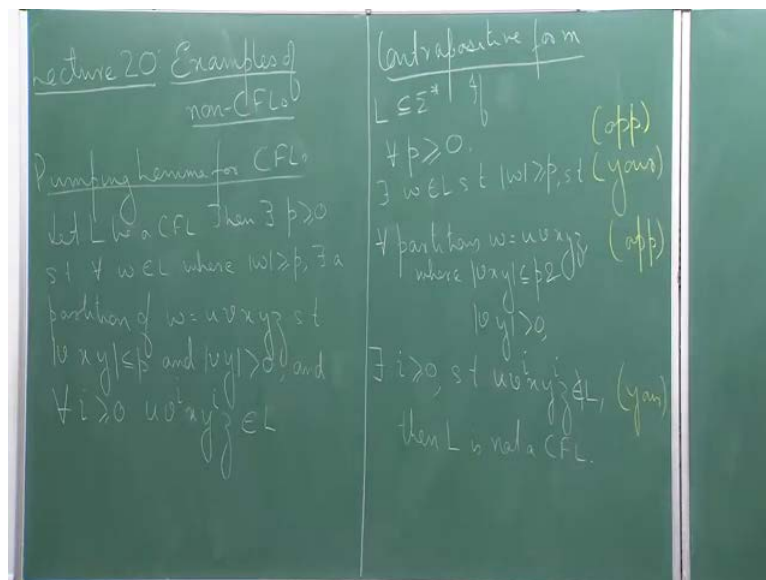 Lecture 20: Examples of
non-CFLs
Pumping Lemma for CFLs
Let L be a CFL Then ∃ p≥0
st ∀ w∈L where |w|≥p, ∃ a
partition of w=uvxyz st
|vxy|≤p and |vy|>0, and
∀ i≥0 uvⁱxyⁱz ∈ L
Contrapositive form
L ⊆ Σ* If
∀ p≥0, (opp)
∃ w∈L st |w|≥p, st (you)
∀ partitions w=uvxyz (opp)
where |vxy|≤p &
|vy|>0,
∃ i≥0, st uvⁱxyⁱz ∉ L, (you)
then L is not a CFL.